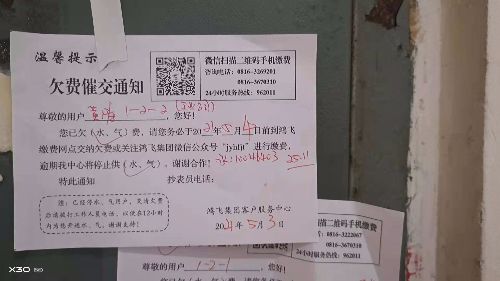 温馨提示
欠费催交通知
微信扫描二维码手机缴费
咨询电话：0816-3269201
0816-3670310
24小时服务热线：962011
尊敬的用户 1-2-2 ，您好！
您已欠（水、气）费，请您务必于20 年5月4日前到鸿飞
缴费网点交纳欠费或关注鸿飞集团微信公众号"jyhfjt"进行缴费，
逾期我中心将停止供（水、气），谢谢合作！ 25.11
特此通知 抄表员电话：
注：已经停水、气用户，交清欠费
后请拨打工作人员电话，以便在12小时
内为您开通水、气，谢谢支持！
鸿飞集团客户服务中心
20 年5月3日
咨询电话：0816-3222067
0816-3670310
24小时服务热线：962011
尊敬的用户 1-2-1 ，您好！
X30